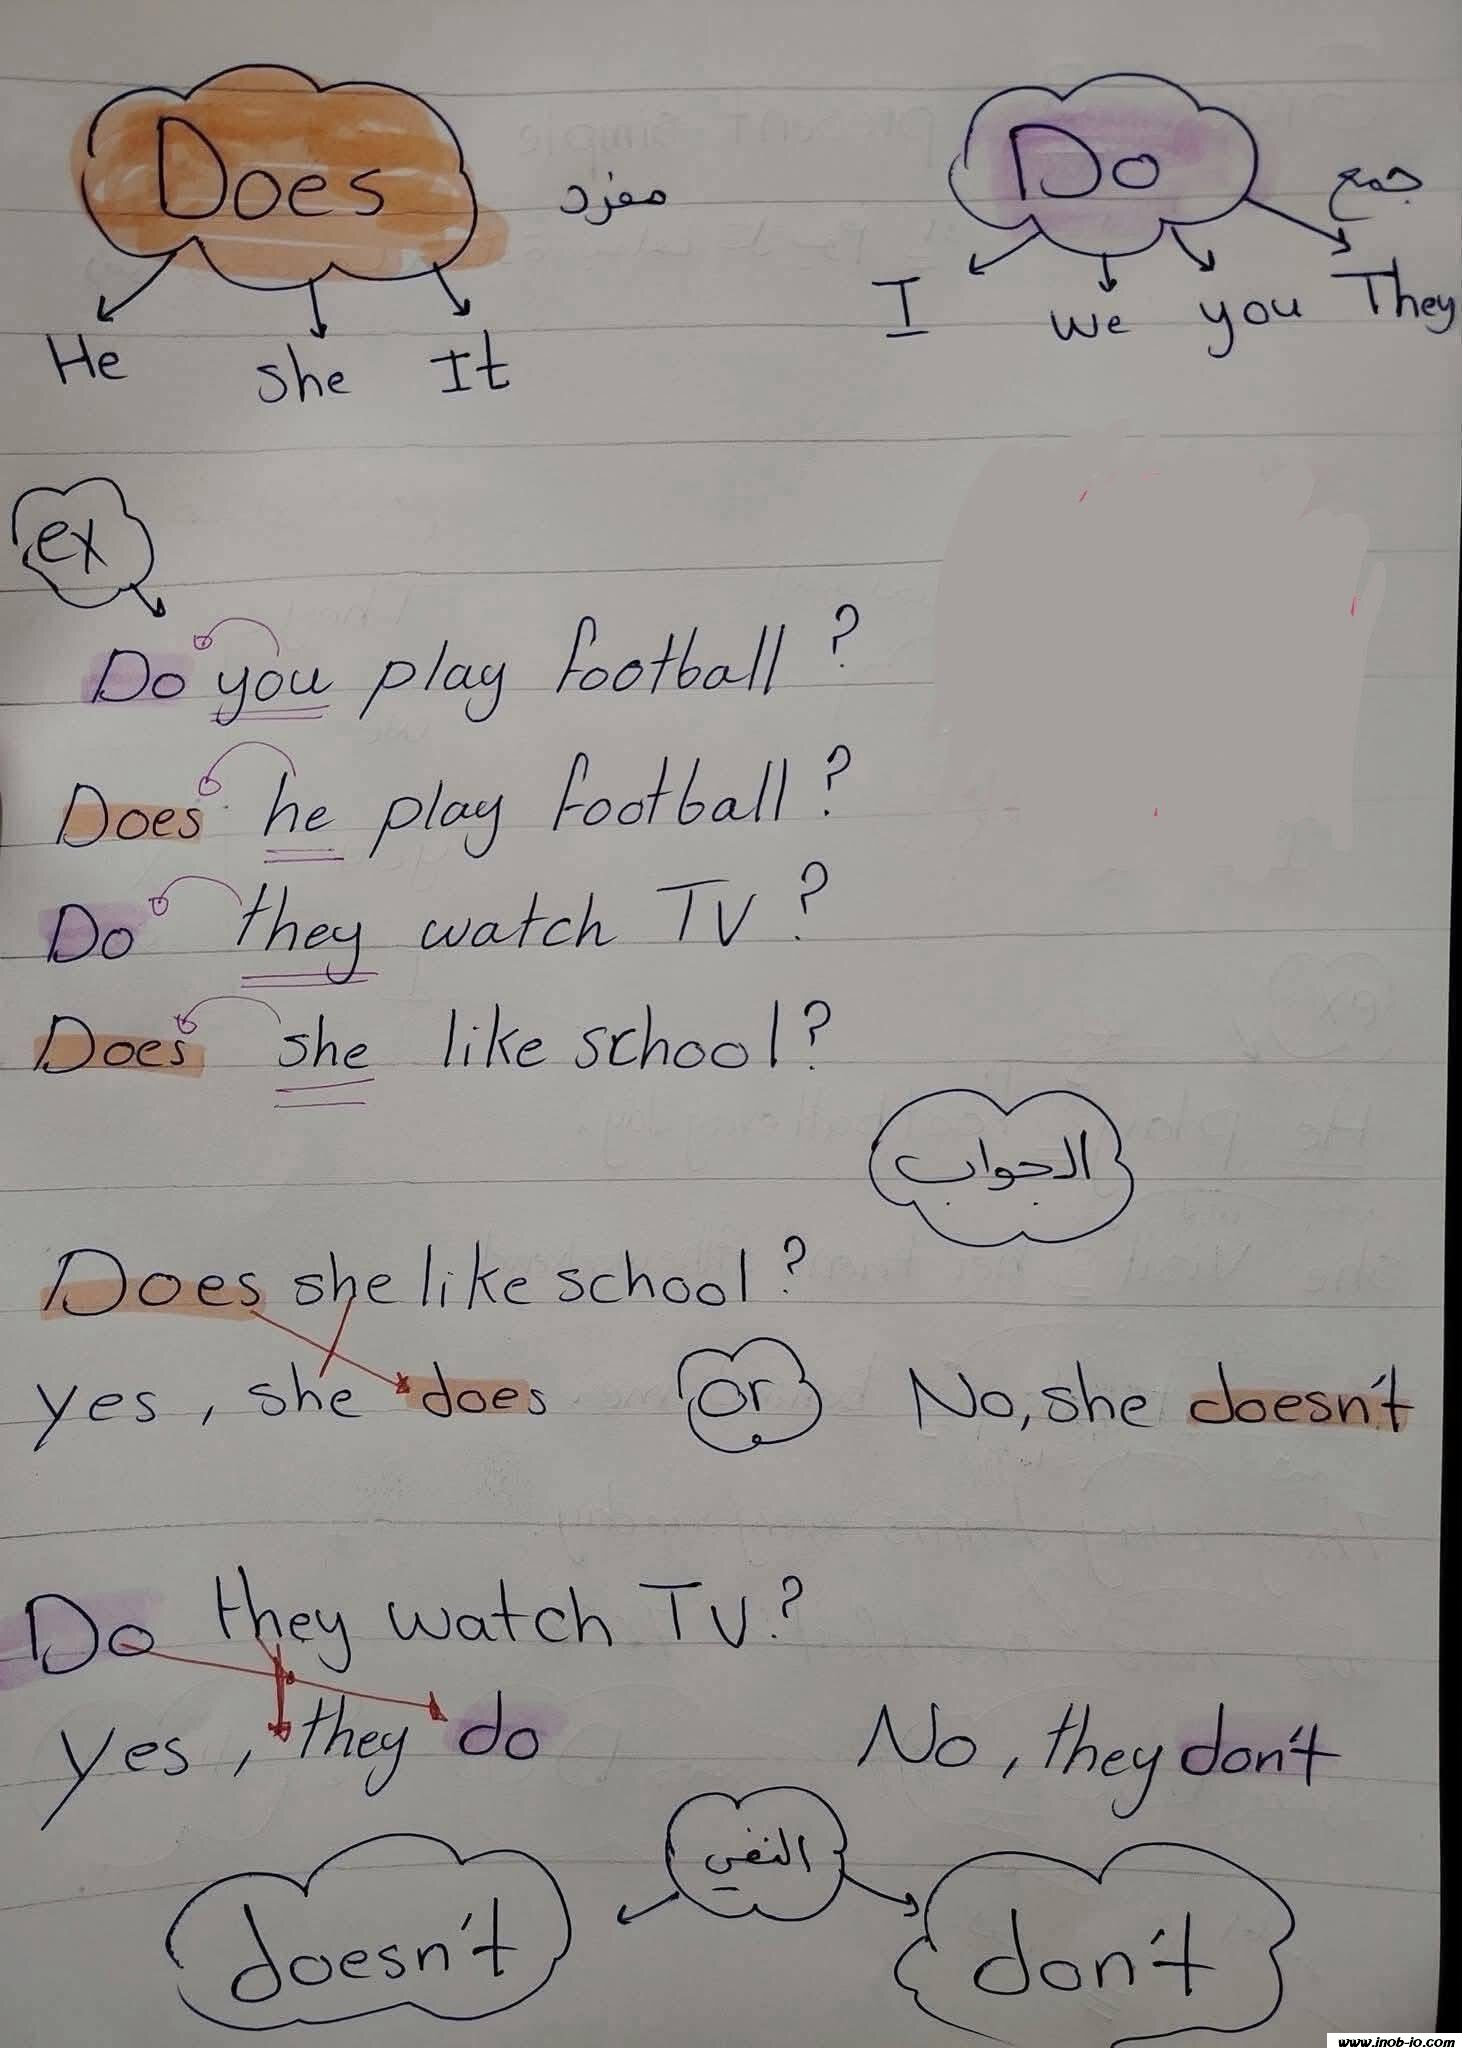 Does مفرد Do جمع
He she It I we you They
ex
Do you play football?
Does he play football?
Do they watch TV?
Does she like school?
الجواب
Does she like school?
yes, she does or No, she doesn't
Do they watch TV?
yes, they do No, they don't
النفي
doesn't don't
www.inob-io.com